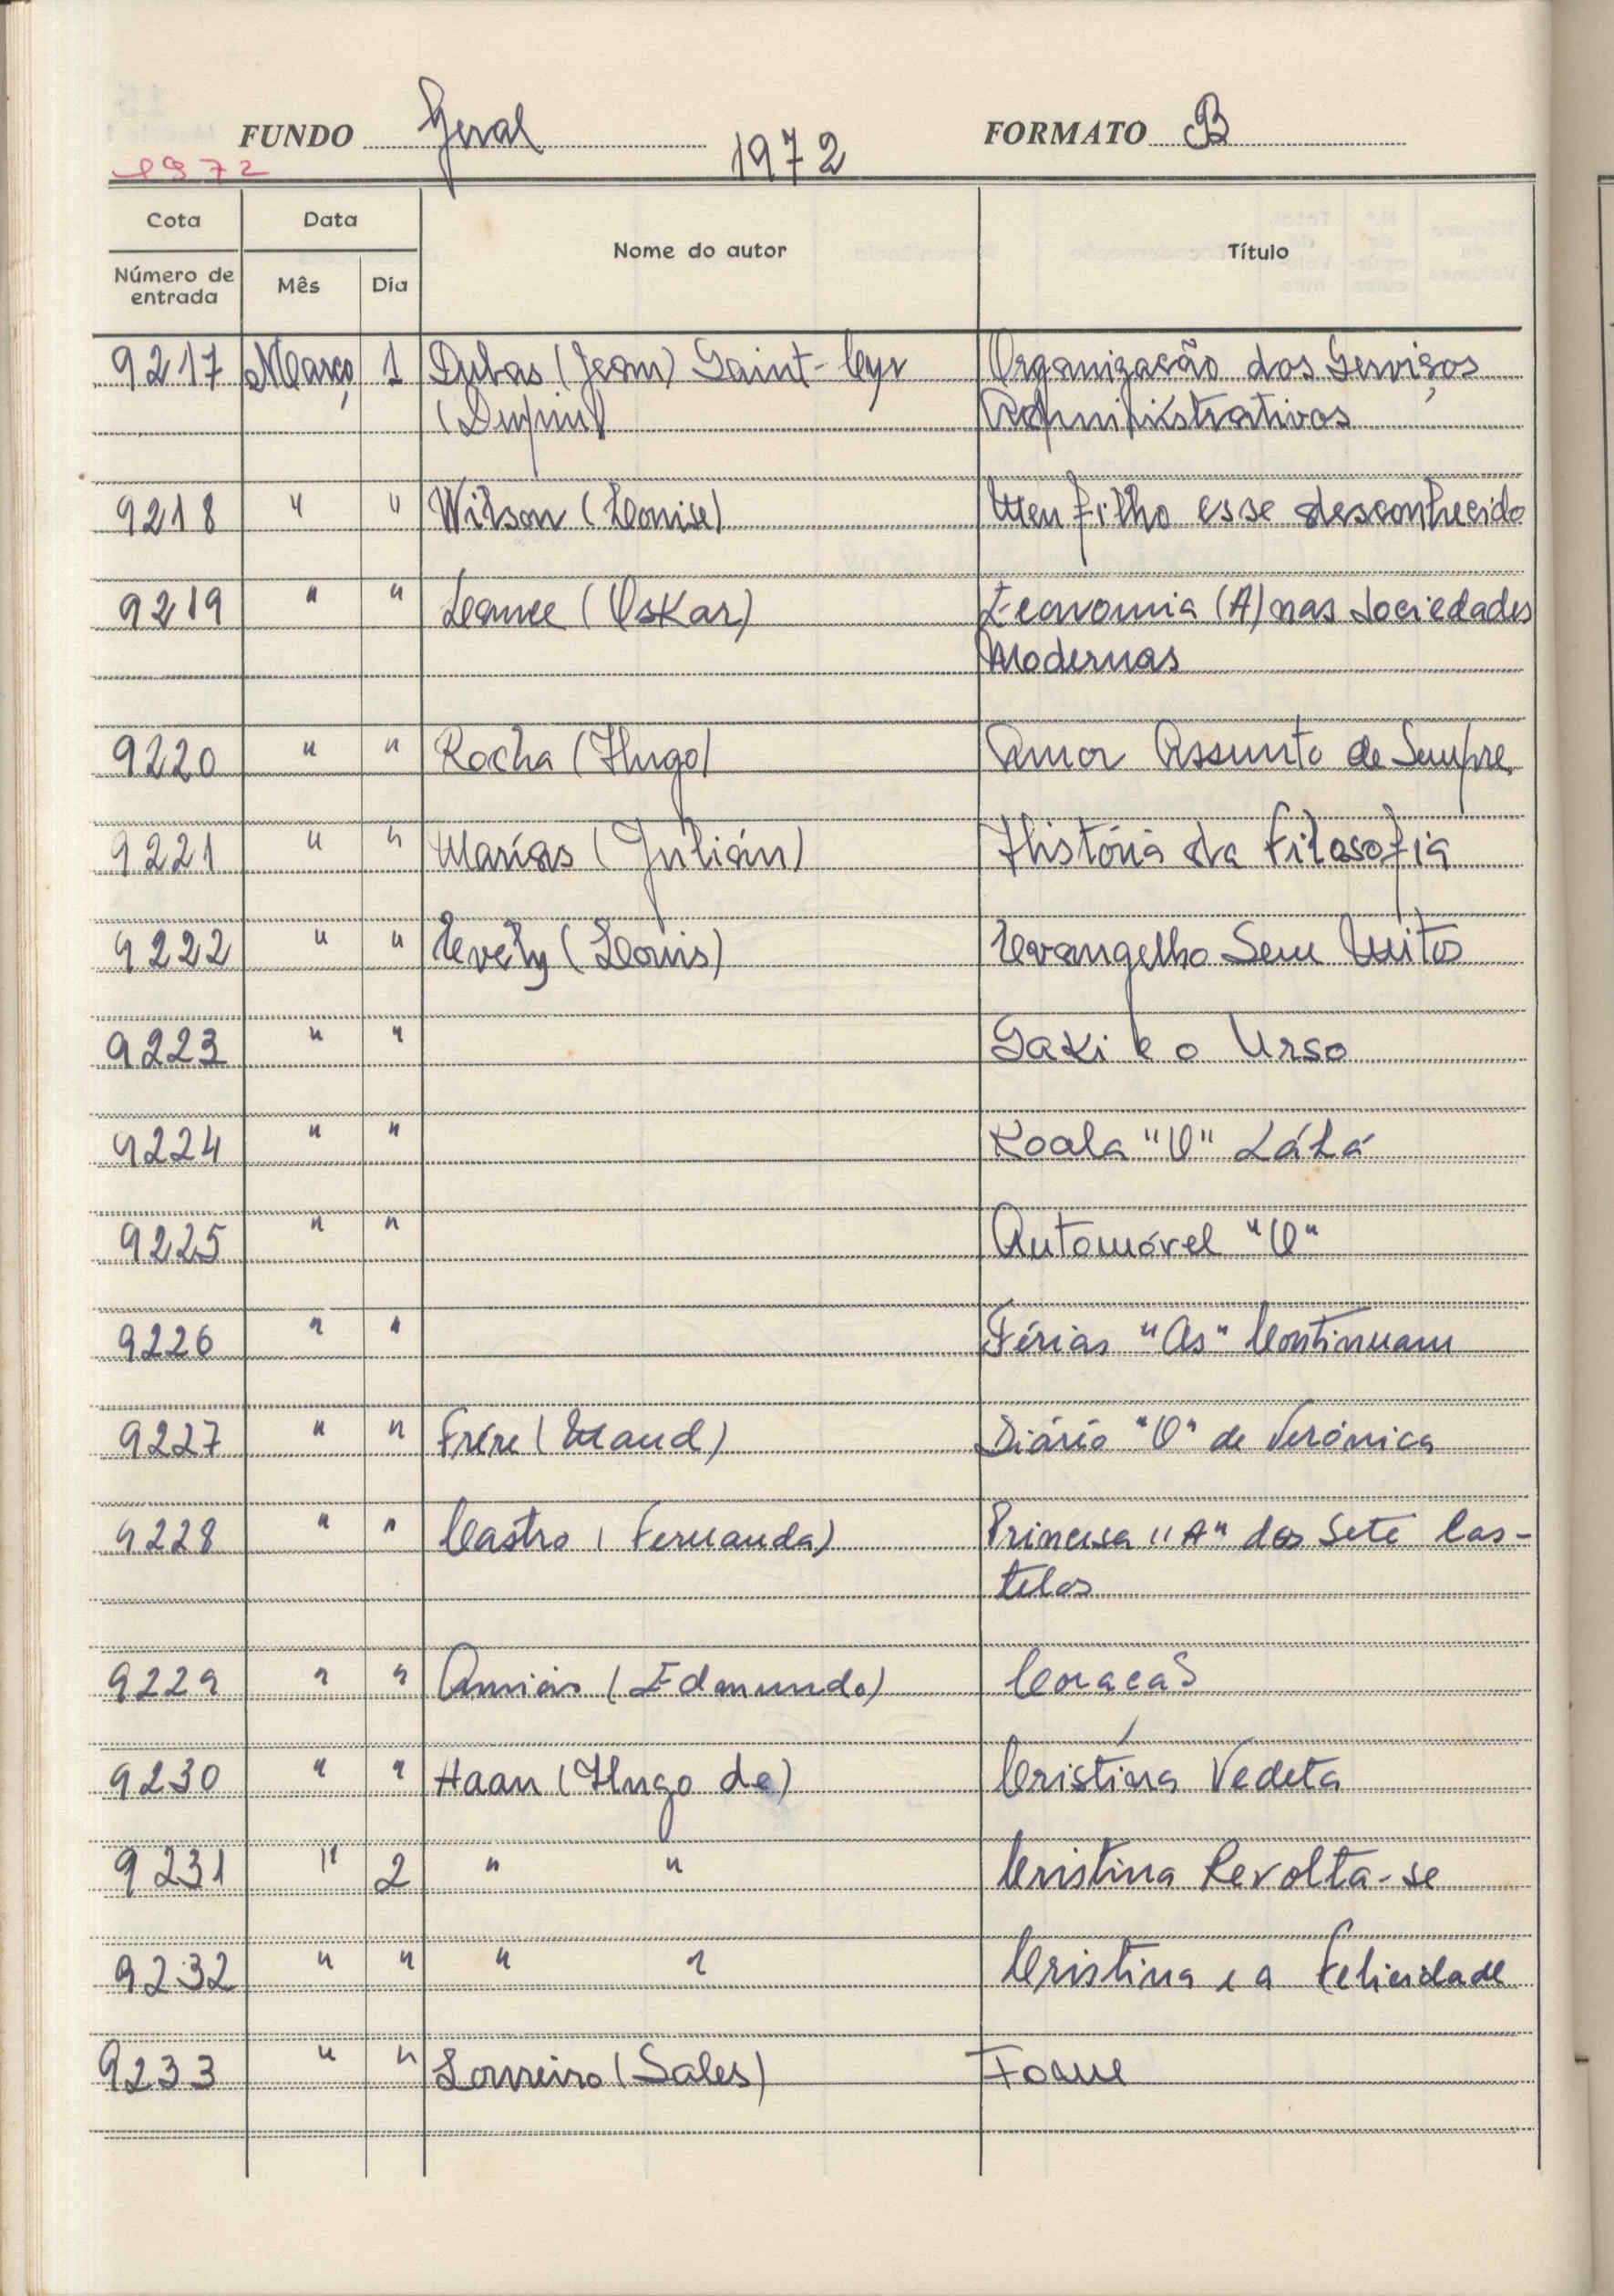 FUNDO Geral FORMATO B
1972 1972
Cota Data Nome do autor Título
Número de entrada Mês Dia
9217 Março 1 Dubas (Jean) Saint-Cyr Organização dos Serviços
(Dupin) Administrativos
9218 " " Wilson (Louise) Meu filho esse desconhecido
9219 " " (Oskar) Economia (A) nas Sociedades
Modernas
9220 " " Rocha (Hugo) Amor Assunto de Sempre
9221 " " Marías (Julián) História da Filosofia
9222 " " Evely (Louis) Evangelho Sem Mitos
9223 " " Gaki e o Urso
9224 " " Koala "O" Lálá
9225 " " Automóvel "O"
9226 " " Férias "As" Continuam
9227 " " Frère (Maud) Diário "O" de Verónica
9228 " " Castro (Fernanda) Princesa "A" dos Sete Cas-
telos
9229 " " (Edmundo)
9230 " " Haan (Hugo de) Cristina Vedeta
9231 " 2 " " Cristina Revolta-se
9232 " " " " Cristina e a Felicidade
9233 " " Loureiro (Sales)